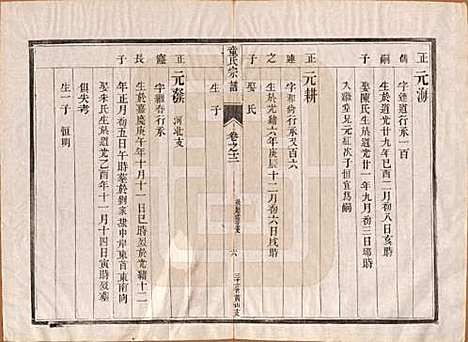 正 元海
儁 字達道行承一百
嗣 生於道光廿九年己酉二月初八日亥時
子 娶陳氏生於道光廿一年九月初三日卯時
入繼堂兄元紅次子恒宜為嗣
正 元耕
連 字和
行承又百六
之 生於光緒六年庚辰十二月初六日戌時
子 娶 氏
生子
童氏宗譜
卷之三
六
正 元發 河北支
憲 字
行承
長 生於嘉慶庚午年十月十一日巳時歿於光緒十二
子 年正月初五日午時葬於劉家
中岸東首東南向
娶朱氏生於道光乙酉年十一月十四日寅時歿葬
俱失考
生一子 恒明